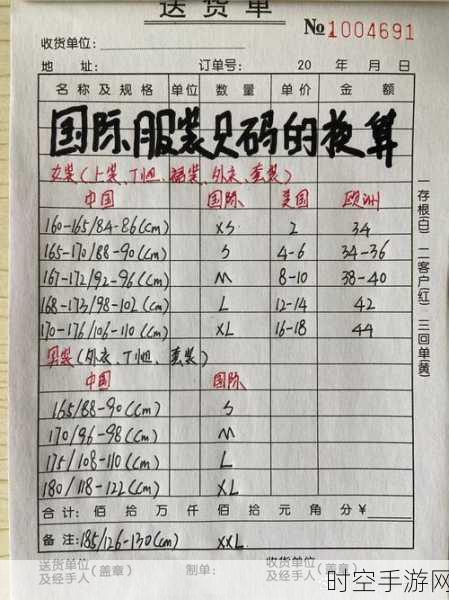 送货单
No 1004691
收货单位:
地 址: 订单号: 20 年 月 日
名称及规格 单位 数量 单价 金额
国际服装尺码的换算
女装(上装、T恤、裙装、外衣、套装)
中国 国际 美国 欧洲
160-165/84-86(cm) XS 2 34
165-170/88-90(cm) S 4-6 34-36
167-172/92-96(cm) M 8-10 38-40
168-173/98-102(cm) L 12-14 42
170-176/106-110(cm) XL 16-18 44
男装(外衣、T恤、套装)
中国 国际
165/88-90(cm) S
170/96-98(cm) M
175/108-110(cm) L
180/118-122(cm) XL
合计: 佰 拾 万 仟 佰 拾 元 角 分¥
备注:185/126-130(cm) XXL
送货单位及经手人(盖章) 制单: 收货单位及经手人(盖章)
一存根(白) 二客户(红) 三回单(黄)
时空手游网